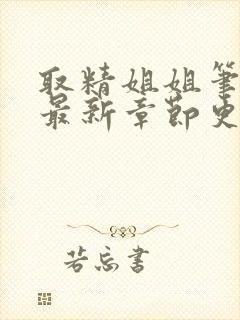 取精姐姐筆
最新章節史
若忘書